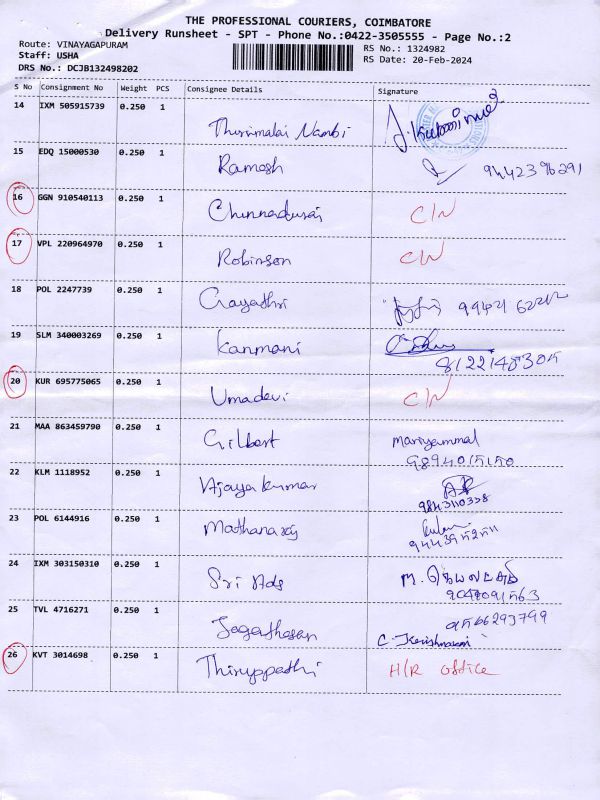 THE PROFESSIONAL COURIERS, COIMBATORE
Delivery Runsheet - SPT - Phone No.:0422-3505555 - Page No.:2
Route: VINAYAGAPURAM
Staff: USHA
DRS No.: DCJB132498202
RS No.: 1324982
RS Date: 20-Feb-2024
S No Consignment No Weight PCS Consignee Details Signature
14 IXM 505915739 0.250 1 Thirumalai Nambi
15 EDQ 15000530 0.250 1 Ramesh 9442396291
16 GGN 910540113 0.250 1 Chinnadurai C/N
17 VPL 220964970 0.250 1 Robinson C/N
18 POL 2247739 0.250 1 Gayathri
19 SLM 340003269 0.250 1 Kanmani
20 KUR 695775065 0.250 1 Umadevi C/N
21 MAA 863459790 0.250 1 Gilbert Mariyammal
22 KLM 1118952 0.250 1 Vijayakumar
9843110338
23 POL 6144916 0.250 1 Mathanaraj
24 IXM 303150310 0.250 1 Sri Ads
25 TVL 4716271 0.250 1 Jegatheesan
26 KVT 3014698 0.250 1 Thiruppathi H/R office